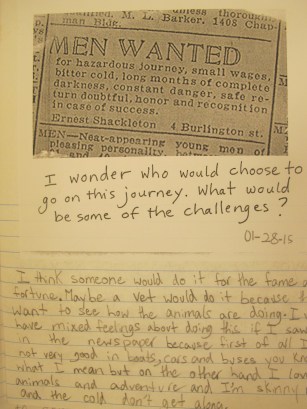 unless thorough
M. L. Barker. 1408 Chap-
man Bldg.
MEN WANTED
for hazardous journey, small wages,
bitter cold, long months of complete
darkness, constant danger, safe re-
turn doubtful, honor and recognition
in case of success.
Ernest Shackleton 4 Burlington st.
MEN—Neat-appearing young men of
pleasing personality,
I wonder who would choose to
go on this journey. What would
be some of the challenges?
01-28-15
I think someone would do it for the fame
fortune. Maybe a vet would do it because
want to see how the animals are doing. I
have mixed feelings about doing this if I saw
in the newspaper because first of all I
not very good in boats, cars and buses you
what I mean but on the other hand I
animals and adventure and I'm skinny
and the cold don't get along.